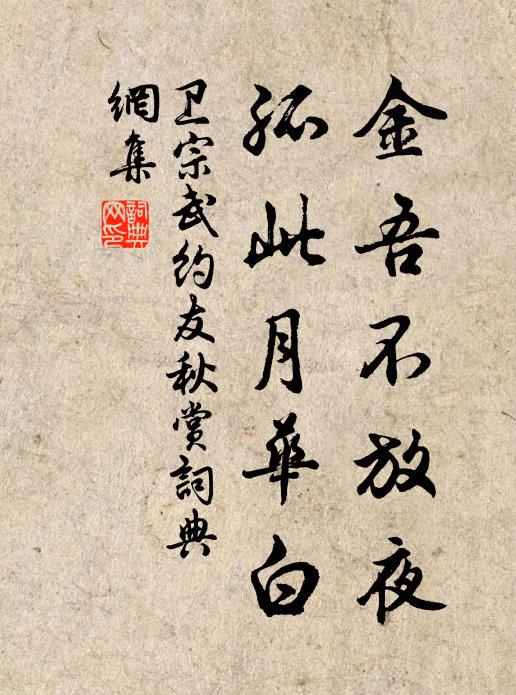 金吾不放夜
孤此月華白
卫宗武约友秋赏詞典
網集
詞典
网印